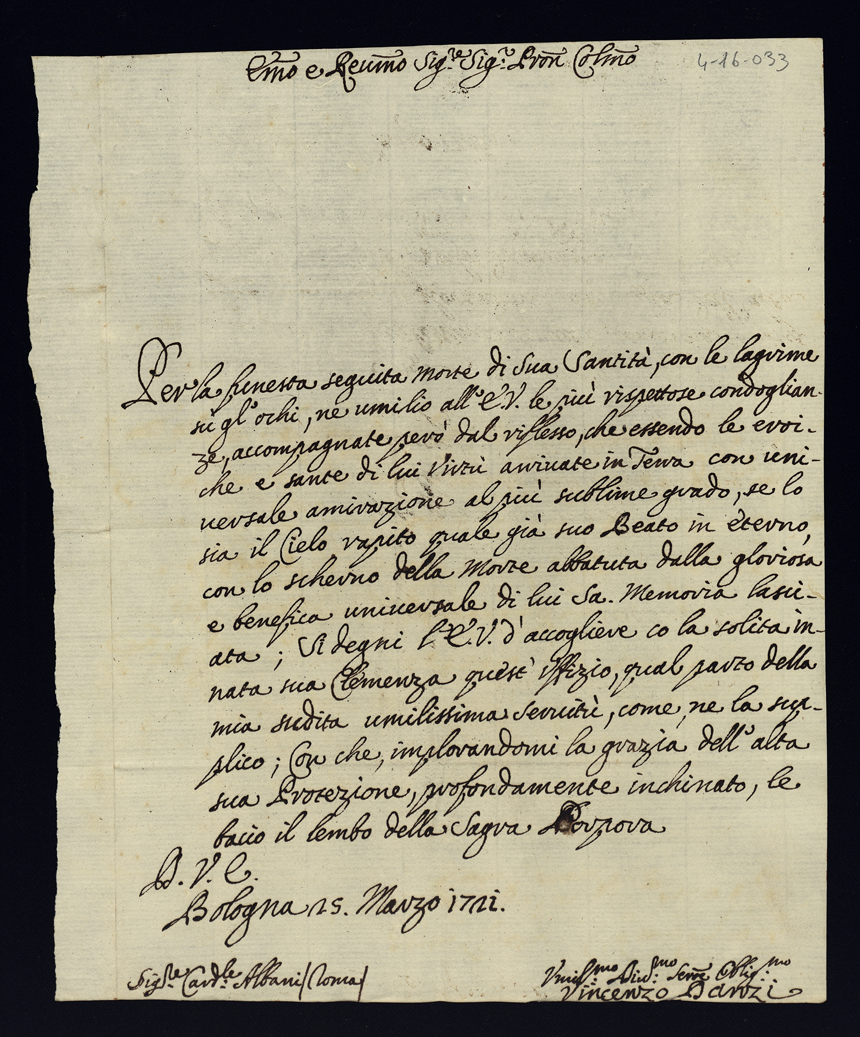 Em̃o e Reum̃o Sig.re Sig.r Pron̄ Colm̃o
4-16-033
Per la funesta seguita Morte di Sua Santità, con le lagrime
sù gl'ochi, ne umilio all'E.V. le più rispettose condoglian-
ze, accompagnate però dal riflesso, che essendo le eroi-
che e sante di lui Virtù arrivate in Terra con uni-
uersale amirazione al più sublime grado, se lo
sia il Cielo rapito quale già suo Beato in èterno,
con lo scherno della Morte abbatuta dalla gloriosa
e benefica uniuersale di lui Sa. Memoria lasci-
ata; Si degni l'E.V. d'accogliere co la solita in-
nata sua Clemenza quest'uffizio, qual parto della
mia sudita umilissima Seruitù, come, ne la sup-
plico; Con che, implorandomi la grazia dell'alta
sua Protezione, profondamente inchinato, le
bacio il lembo della Sagra Porpora
D. V. E.
Bologna 25. Marzo 1721.
Sig.re Card.le Albani (Roma)
Vmil.mo Diu.mo Serre Oblig.mo
Vincenzo Barozi